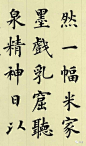 然一幅米家
墨戲乳窟聽
泉精神日以